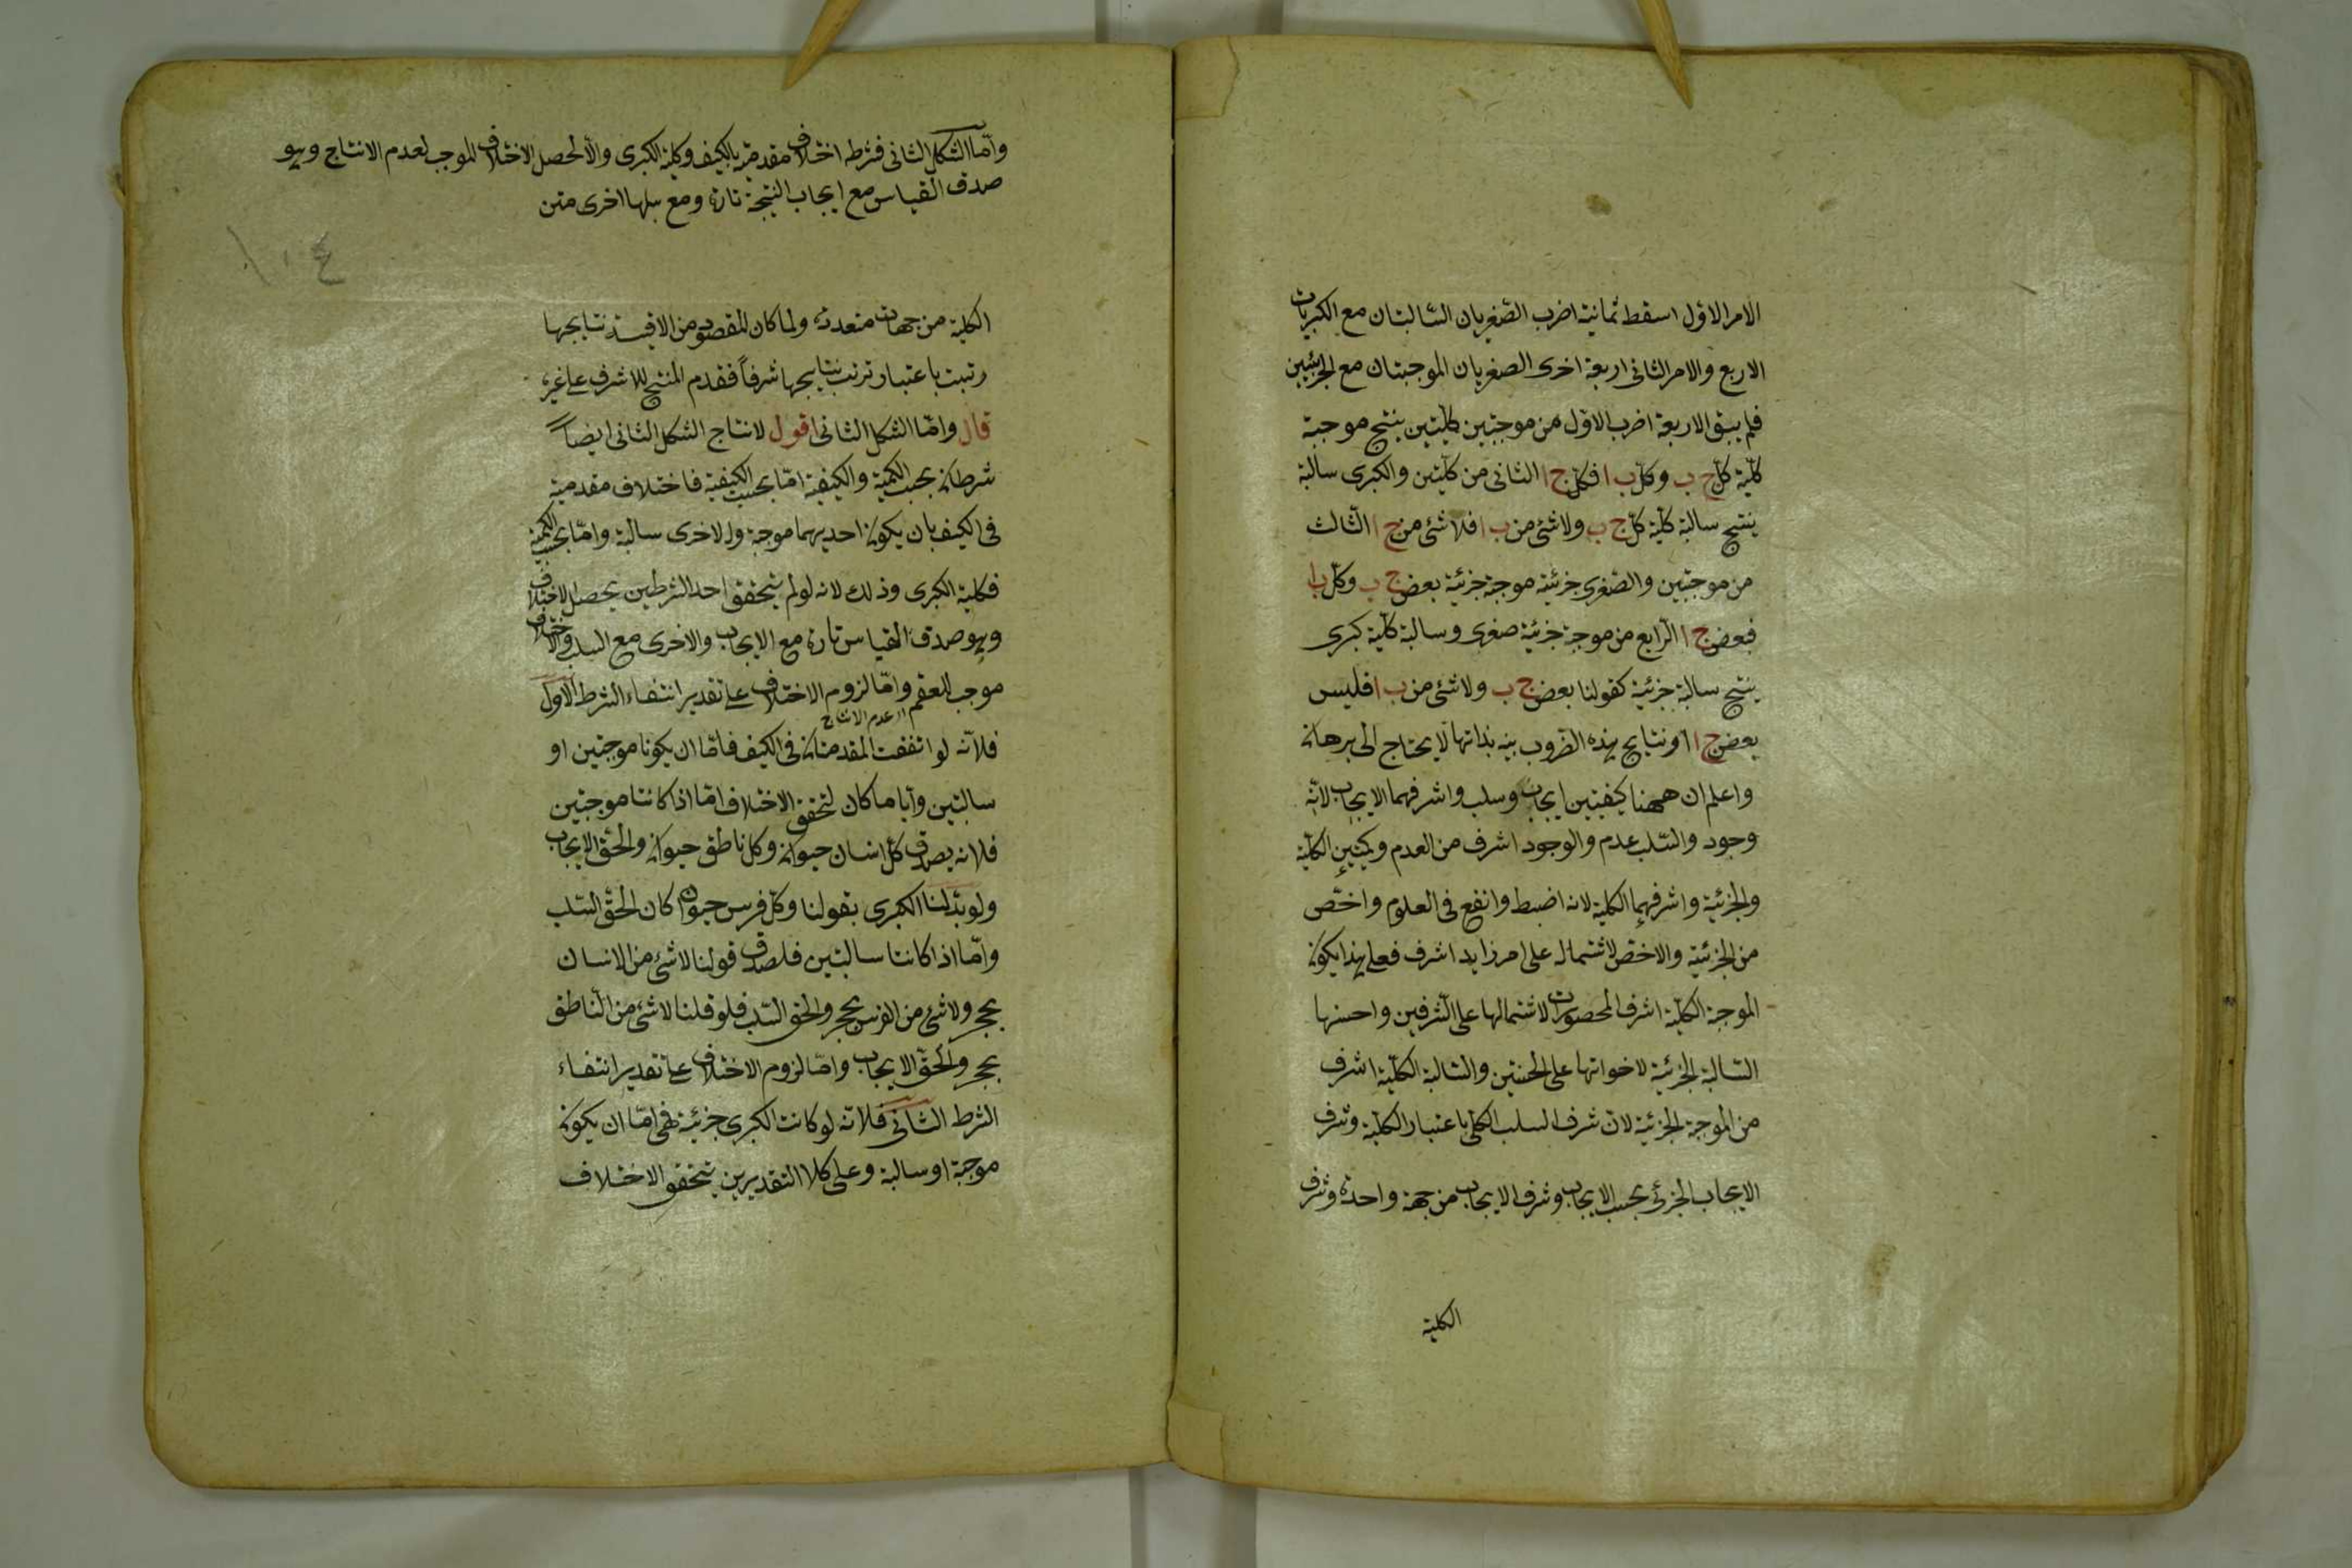 الامر الاوّل اسقط ثمانية اضرب الصّغريان السّالبتان مع الكبريات
الاربع والامر الثانى اربعة اخرى الصغريان الموجبتان مع الجزئيتين
فلم يبق الا اربعة اضرب الاوّل من موجبتين كليّتين ينتج موجبة
كليّة كلّ ج ب وكلّ ب ا فكلّ ج ا الثانى من كليّتين والكبرى سالبة
ينتج سالبة كليّة كلّ ج ب ولا شئ من ب ا فلا شئ من ج ا الثّالث
من موجبتين والصّغرى جزئيّة موجبة جزئيّة بعض ج ب وكلّ ب ا
فبعض ج ا الرّابع من موجبة جزئيّة صغرى وسالبة كليّة كبرى
ينتج سالبة جزئيّة كقولنا بعض ج ب ولا شئ من ب ا فليس
بعض ج ا ونتايج هذه الضّروب بينه بذاتها لا يحتاج الى برهان
واعلم ان ههنا كيفيتين ايجاب وسلب واشرفهما الايجاب لانّه
وجود والسّلب عدم والوجود اشرف من العدم وكميتين الكليّة
والجزئيّة واشرفهما الكلية لانه اضبط وانفع فى العلوم واخصّ
من الجزئيّة والاخصّ لاشتماله على امر زايد اشرف فعلى هذا يكون
الموجبة الكليّة اشرف المحصورات لاشتمالها على الشّرفين واخسّها
السّالبة الجزئيّة لاحتوائها على الخسّتين والسّالبة الكليّة اشرف
من الموجبة الجزئيّة لان شرف السلب الكلّى باعتبار الكليّة وشرف
الايجاب الجزئى بحسب الايجاب وشرف الايجاب من جهة واحدة وشرف
الكلية
وامّا الشكل الثانى فشرطه اختلاف مقدمتيه بالكيف وكلية الكبرى والّا لحصل الاختلاف الموجب لعدم الانتاج وهو
صدق القياس مع ايجاب النتيجة تارة ومع سلبها اخرى متن
١٠٤
الكلية من جهات متعددة ولما كان المقصود من الاقيسة نتايجها
رتبت باعتبار ترتب نتايجها شرفاً فقدم المنتج للاشرف على غيره
قال وامّا الشكل الثانى اقول لانتاج الشكل الثانى ايضاً
شرطان بحسب الكمية والكيفية امّا بحسب الكيفية فاختلاف مقدمتيه
فى الكيف بان يكون احديهما موجبة والاخرى سالبة وامّا بحسب الكمية
فكلية الكبرى وذلك لانه لو لم يتحقق احد الشرطين يحصل الاختلاف
وهو صدق القياس تارة مع الايجاب والاخرى مع السلب والاختلاف
موجب للعقم وامّا لزوم الاختلاف على تقدير انتفاء الشرط الاول
اى عدم الانتاج
فلانّه لو اتفقت المقدمتان فى الكيف فامّا ان يكونا موجبتين او
سالبتين وايا ما كان لتحقق الاختلاف امّا اذا كانتا موجبتين
فلانه يصدق كلّ انسان حيوان وكل ناطق حيوان والحقّ الايجاب
ولو بدّلنا الكبرى بقولنا وكلّ فرس حيوان كان الحقّ السّلب
وامّا اذا كانتا سالبتين فلصدق قولنا لا شئ من الانسان
بحجر ولا شئ من الفرس بحجر والحق السّلب فلو قلنا لا شئ من النّاطق
بحجر والحقّ الايجاب وامّا لزوم الاختلاف على تقدير انتفاء
الشرط الثّانى فلانّه لو كانت الكبرى جزئيّة فهى امّا ان يكون
موجبة او سالبة وعلى كلا التقديرين يتحقق الاختلاف